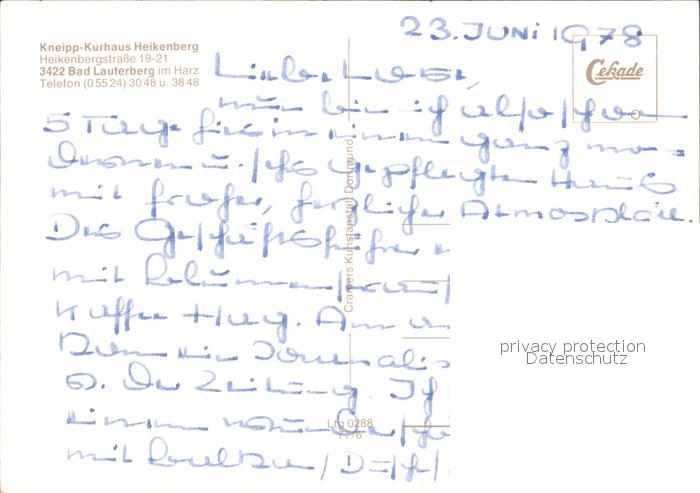 23. JUNI 1978
Kneipp-Kurhaus Heikenberg
Heikenbergstraße 19-21
3422 Bad Lauterberg im Harz
Telefon (0 55 24) 30 48 u. 38 48
Cekade
nun bin ich also schon
5 Tage hier in einem ganz mo-
dernen u. sehr gepflegten Haus
mit froher, herzlicher Atmosphäre.
Das Geschäftsführer
mit Blumen
Kaffee Hag. Am
kam ein Journalis
o. der Zeitung. Ich
einem wunder
mit
Cramers Kunstanstalt Dortmund
Ltg 0288
77/6
privacy protection
Datenschutz